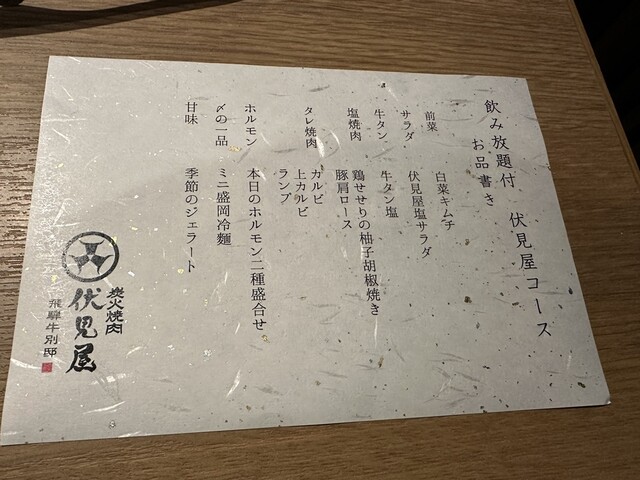 飲み放題付 伏見屋コース
お品書き
前菜 白菜キムチ
サラダ 伏見屋塩サラダ
牛タン 牛タン塩
塩焼肉 鶏せせりの柚子胡椒焼き
豚肩ロース
タレ焼肉 カルビ
上カルビ
ランプ
ホルモン 本日のホルモン二種盛合せ
〆の一品 ミニ盛岡冷麺
甘味 季節のジェラート
炭火焼肉
伏見屋
飛騨牛別邸